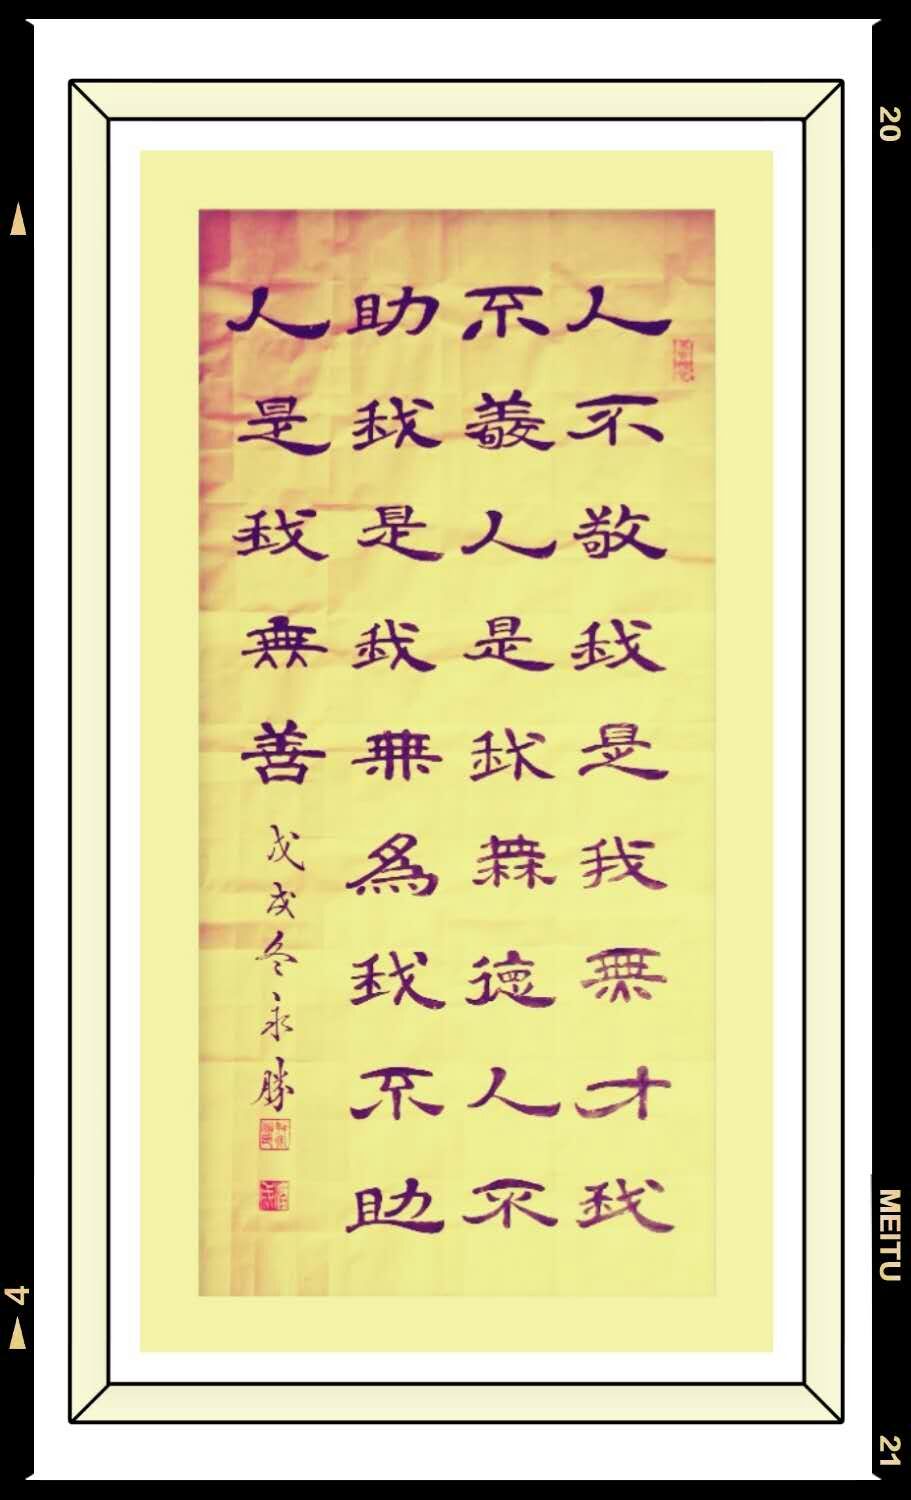 人不敬我是我無才我
不敬人是我無德人不
助我是我無為我不助
人是我無善
戊戌冬永勝
20
MEITU
21
4